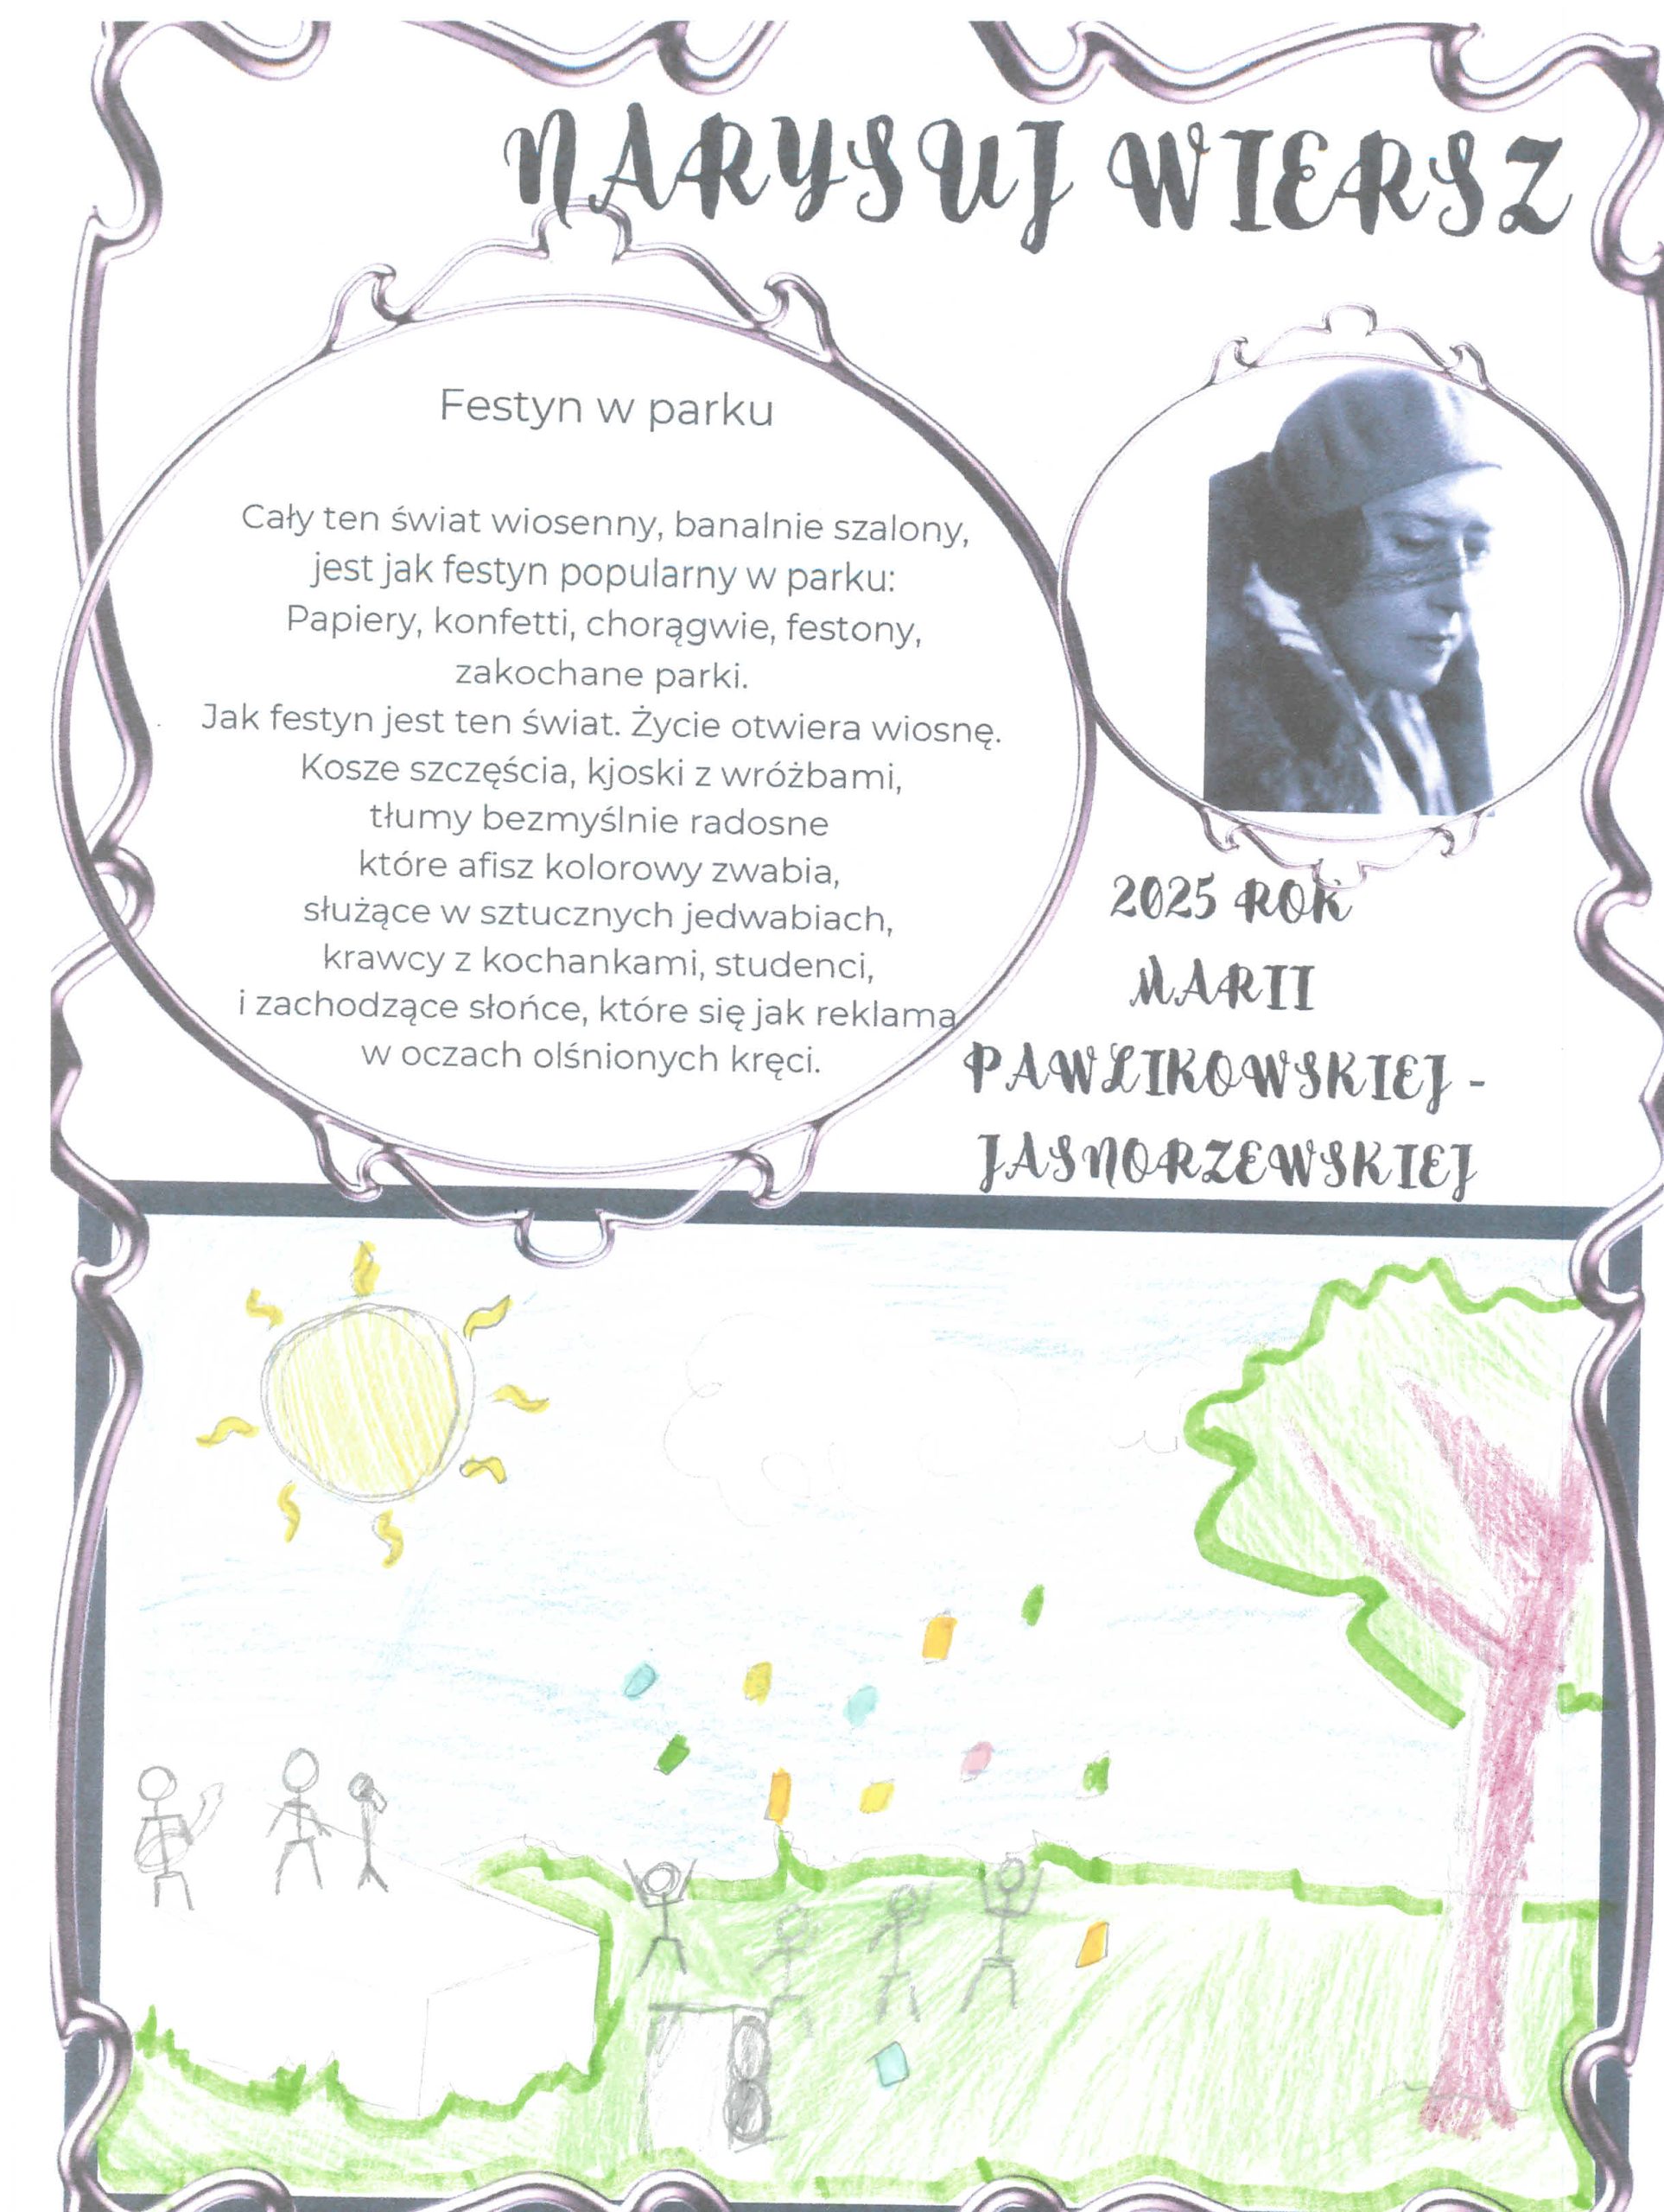 NARYSUJ WIERSZ
Festyn w parku
Cały ten świat wiosenny, banalnie szalony,
jest jak festyn popularny w parku:
Papiery, konfetti, chorągwie, festony,
zakochane parki.
Jak festyn jest ten świat. Życie otwiera wiosnę.
Kosze szczęścia, kjoski z wróżbami,
tłumy bezmyślnie radosne
które afisz kolorowy zwabia,
służące w sztucznych jedwabiach,
krawcy z kochankami, studenci,
i zachodzące słońce, które się jak reklama
w oczach olśnionych kręci.
2025 ROK
MARII
PAWLIKOWSKIEJ -
JASNORZEWSKIEJ